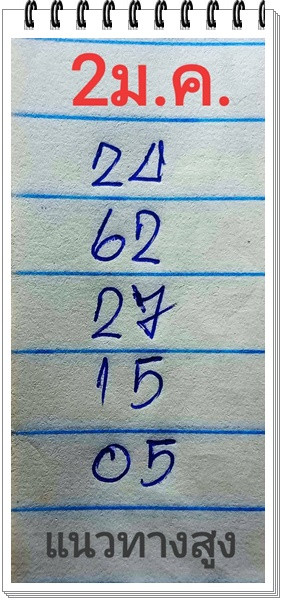 2ม.ค.
24
62
27
15
05
แนวทางสูง